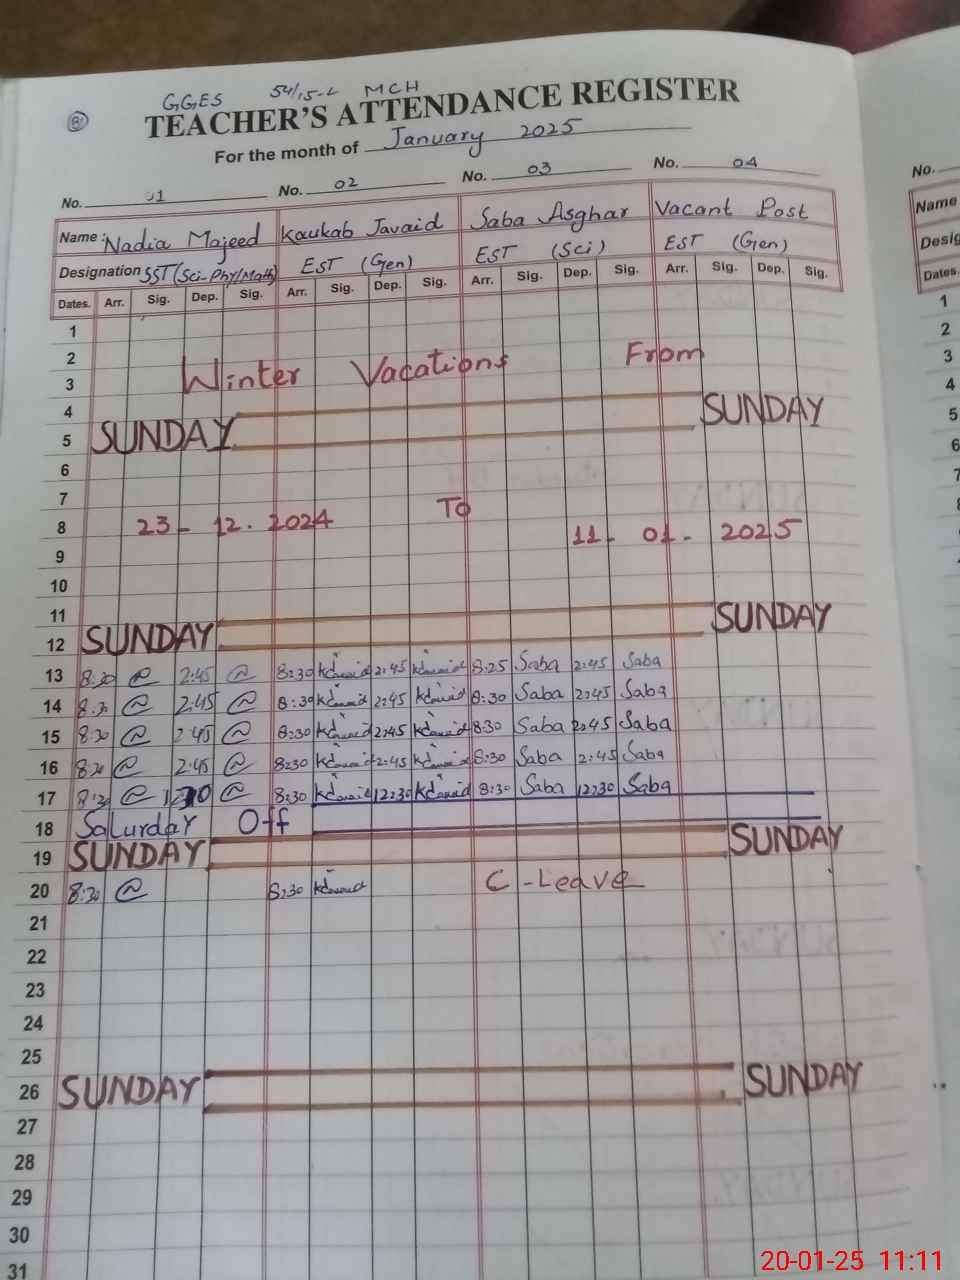 GGES 54/15-L MCH
TEACHER'S ATTENDANCE REGISTER
For the month of January 2025
No. 01 No. 02 No. 03 No. 04 No.
Name: Nadia Majeed Kaukab Javaid Saba Asghar Vacant Post Name
Designation SST (Sci-Phy/Math) EST (Gen) EST (Sci) EST (Gen) Desig
Dates. Arr. Sig. Dep. Sig. Arr. Sig. Dep. Sig. Arr. Sig. Dep. Sig. Arr. Sig. Dep. Sig. Dates.
1 1
2 2
3 Winter Vacations From 3
4 4
5 SUNDAY SUNDAY 5
6 6
7 7
8 23-12.2024 To 11-01-2025
9
10
11
12 SUNDAY SUNDAY
13 8:30 2:45 8:30 2:45 8:25 Saba 2:45 Saba
14 8:30 2:45 8:30 2:45 8:30 Saba 2:45 Saba
15 8:30 2:45 8:30 2:45 8:30 Saba 2:45 Saba
16 8:30 2:45 8:30 2:45 8:30 Saba 2:45 Saba
17 8:30 8:30 12:30 8:30 Saba 12:30 Saba
18 Saturday Off
19 SUNDAY SUNDAY
20 8:30 8:30 C-Leave
21
22
23
24
25
26 SUNDAY SUNDAY
27
28
29
30
31
20-01-25 11:11